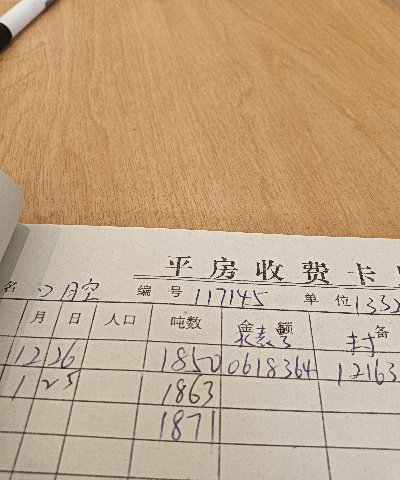 平房收费卡
名 编号 117145 单位 1332
月 日 人口 吨数 金额 备
水表号 封
12 26 1850 0618364 12163
1 25 1863
1871